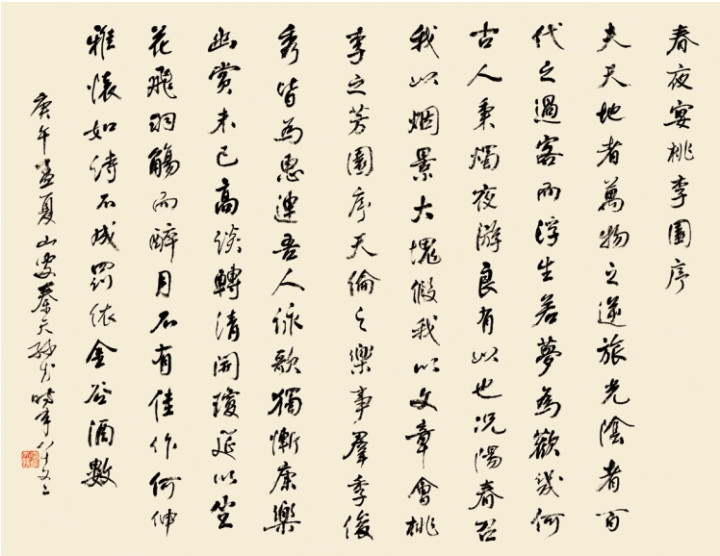 春夜宴桃李園序
夫天地者萬物之逆旅光陰者百
代之過客而浮生若夢為歡幾何
古人秉燭夜游良有以也況陽春召
我以烟景大塊假我以文章會桃
李之芳園序天倫之樂事羣季俊
秀皆為惠連吾人詠歌獨慚康樂
幽賞未已高談轉清開瓊筵以坐
花飛羽觴而醉月不有佳作何伸
雅懷如詩不成罰依金谷酒數
庚午孟夏山時年八十又二